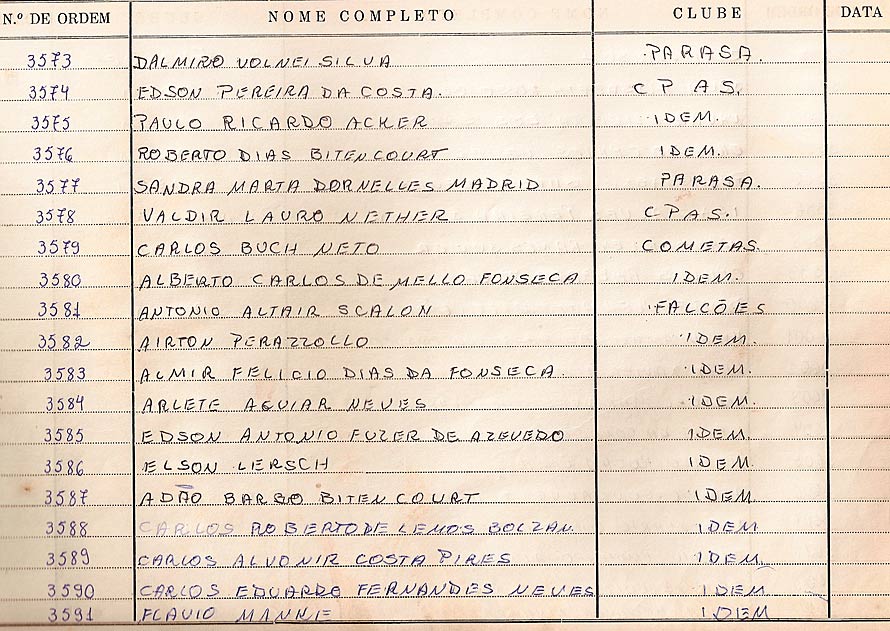 N.º DE ORDEM NOME COMPLETO CLUBE DATA
3573 DALMIRO VOLNEI SILVA PARASA.
3574 EDSON PEREIRA DA COSTA. C P A S.
3575 PAULO RICARDO ACKER IDEM.
3576 ROBERTO DIAS BITENCOURT IDEM.
3577 SANDRA MARTA DORNELLES MADRID PARASA.
3578 VALDIR LAURO NETHER C P A S.
3579 CARLOS BUCH NETO COMETAS.
3580 ALBERTO CARLOS DE MELLO FONSECA IDEM.
3581 ANTONIO ALTAIR SCALON FALCÕES
3582 AIRTON PERAZZOLLO IDEM.
3583 ALMIR FELICIO DIAS DA FONSECA IDEM.
3584 ARLETE AGUIAR NEVES IDEM.
3585 EDSON ANTONIO FUZER DE AZEVEDO IDEM.
3586 ELSON LERSCH IDEM
3587 ADÃO BARBO BITENCOURT IDEM
3588 CARLOS ROBERTO DE LEMOS BOLZAN. IDEM
3589 CARLOS ALVONIR COSTA PIRES IDEM.
3590 CARLOS EDUARDO FERNANDES NEVES IDEM
3591 FLAVIO IDEM